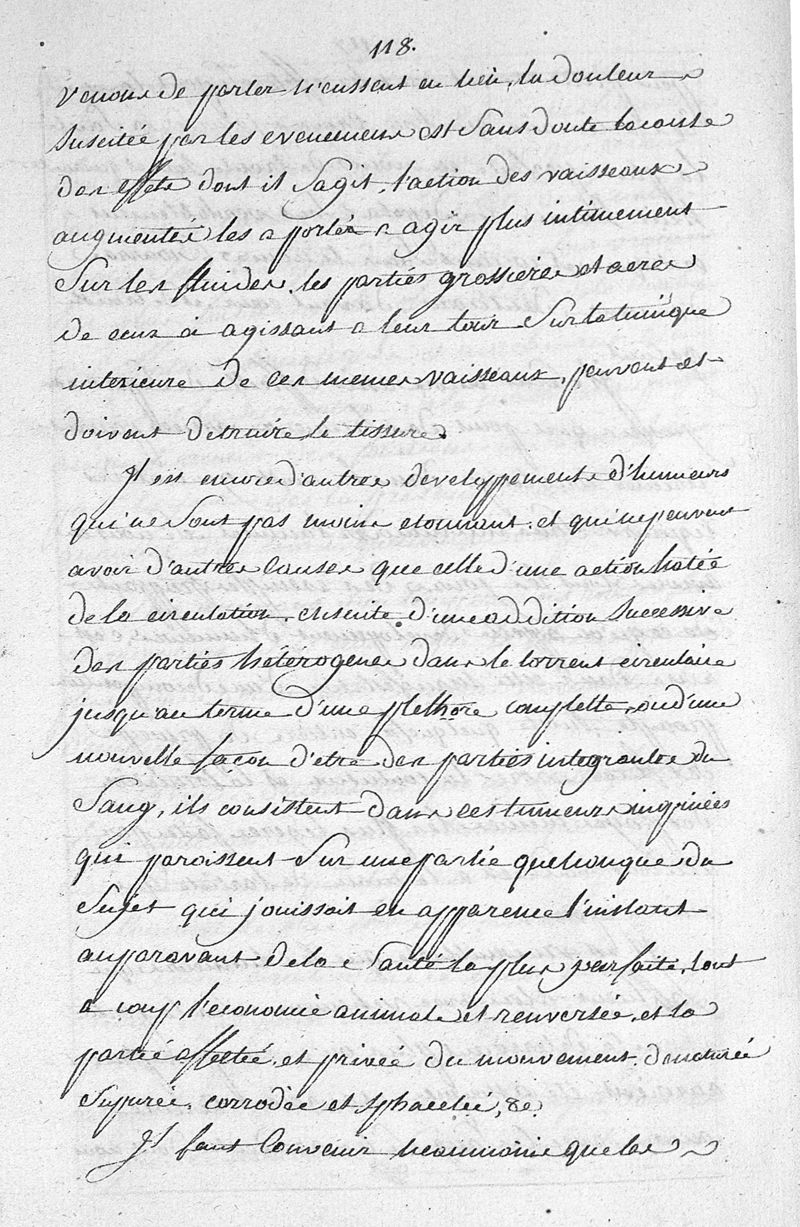 118.
venons de parler n'eussent eu lieu, la douleur
suscitée par les evenemens est sans doute la cause
des effets dont il s'agit, l'action des vaisseaux
augmentée les a portés a agir plus intimement
sur les fluides, les parties grossieres et acres
de ceux ci agissant a leur tour sur la tunique
interieure de ces memes vaisseaux, peuvent et
doivent detruire le tissure.
Il est encore d'autres developpements d'humeurs
qui ne sont pas moins etonnant, et qui ne peuvent
avoir d'autres causes que celle d'une action hatée
de la circulation, ensuite d'une addition successive
des parties hétérogenes dans le torrent circulaire
jusqu'au terme d'une plethore complette, ou d'une
nouvelle façon d'etre des parties integrantes du
sang, ils consistent dans ces tumeurs inopinées
qui paroissent sur une partie quelconque du
sujet qui jouissoit en apparence l'instant
auparavant de la santé la plus parfaite, tout
a coup l'economie animale et renversée, et la
partie affectée, et privée du mouvement, denaturée
supurée, corrodée et sphacelée, &c.
Il faut convenir neanmoins que les